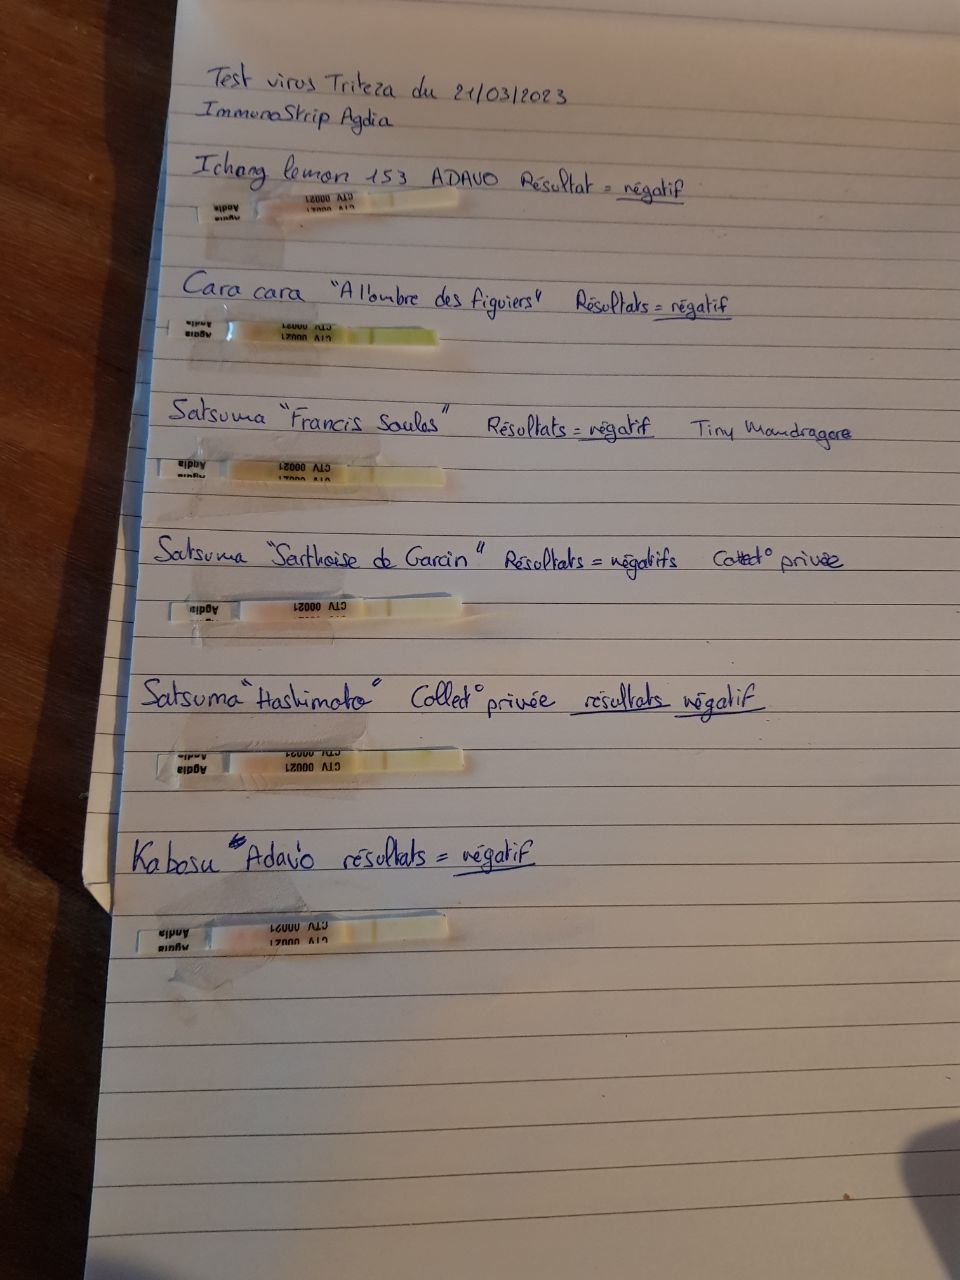 Test virus Triteza du 21/03/2023
ImmunoStrip Agdia
Ichang lemon 153 ADAVO Résultat = négatif
Agdia CTV 00021
Agdia CTV 00021
Cara cara "A l'ombre des figuiers" Résultats = négatif
Agdia CTV 00021
Agdia CTV 00021
Satsuma "Francis Soulas" Résultats = négatif Tiny Mandragore
Agdia CTV 00021
Agdia CTV 00021
Satsuma "Sarthoise de Garcin" Résultats = négatifs Collect° privée
Agdia CTV 00021
Satsuma "Hashimoto" Collect° privée résultats négatif
Agdia CTV 00021
Agdia CTV 00021
Kabosu Adavo résultats = négatif
Agdia CTV 00021
Agdia CTV 00021